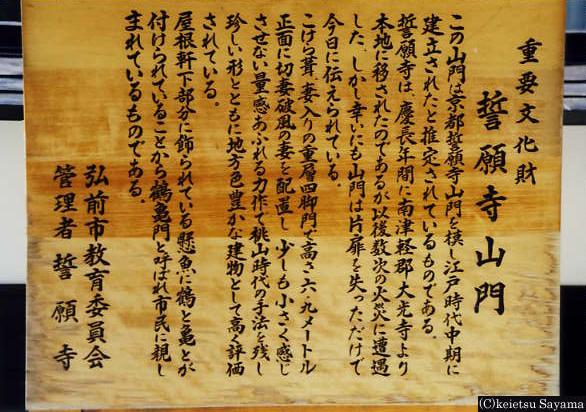 重要文化財
誓願寺山門
この山門は京都誓願寺山門を模し江戸時代中期に
建立されたと推定されているものである。
誓願寺は、慶長年間に南津軽郡大光寺より
本地に移されたのであるが以後数次の火災に遭遇
した。しかし幸いにも山門は片扉を失っただけで
今日に伝えられている。
こけら葺、妻入りの重層四脚門で高さ六・九メートル
正面に切妻破風の妻を配置し少しも小さく感じ
させない量感あふれる力作で桃山時代の手法を残し
珍しい形とともに地方色豊かな建物として高く評価
されている。
屋根軒下部分に飾られている懸魚に鶴と亀とが
付けられていることから鶴亀門と呼ばれ市民に親し
まれているものである。
弘前市教育委員会
管理者誓願寺
(C)keietsu Sayama